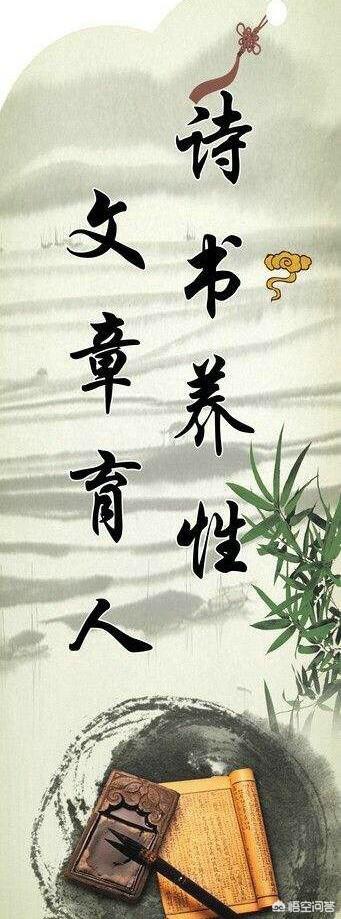 诗书养性
文章育人
悟空问答